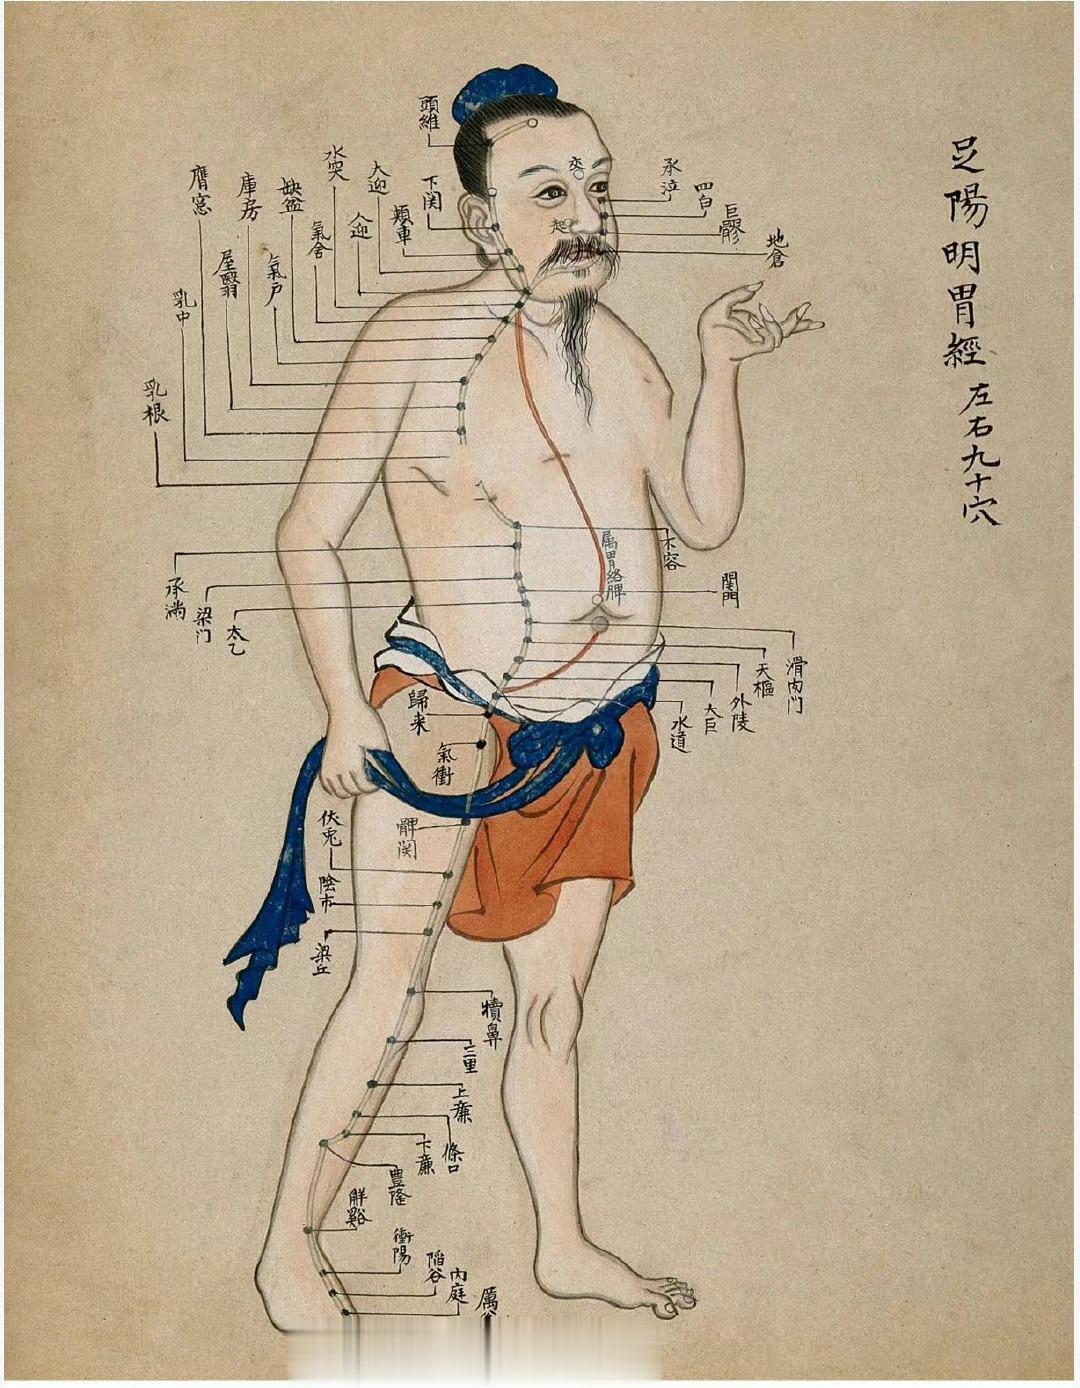 足陽明胃經 左右九十穴
頭維
下関
頬車
大迎
人迎
水突
氣舍
缺盆
氣戶
庫房
屋翳
膺窓
乳中
乳根
承泣
四白
巨髎
地倉
起
属胃絡脾
不容
承滿
梁门
関門
太乙
滑肉门
天樞
外陵
大巨
水道
歸来
氣衝
髀関
伏兎
陰市
梁丘
犢鼻
三里
上廉
條口
下廉
豊隆
解谿
衝陽
陷谷
內庭